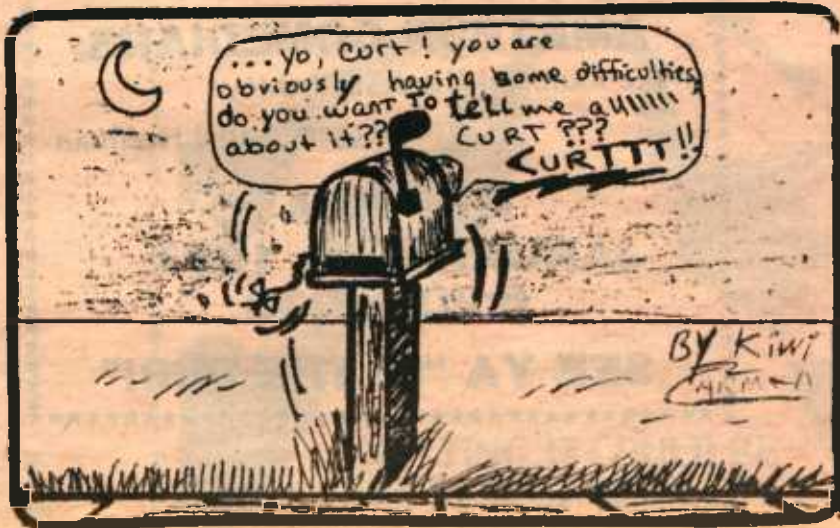 ...yo, Curt! you are
obviously having some difficulties,
do you want to tell me allllllll
about it?? CURT ???
CURTTT!!
BY Kiwi
CARMEN